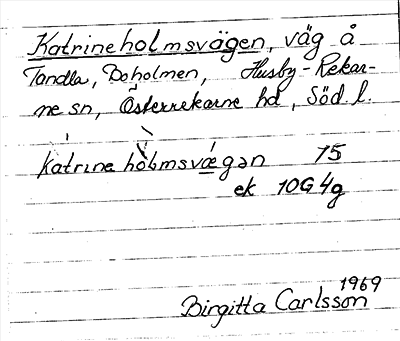 Katrineholmsvägen, väg å
Tandla, Boholmen, Husby-Rekar-
ne sn, Österrekarne hd, Söd. l.
kátrine hòlmsvǽgən 75
ek 10G 4g
1969
Birgitta Carlsson